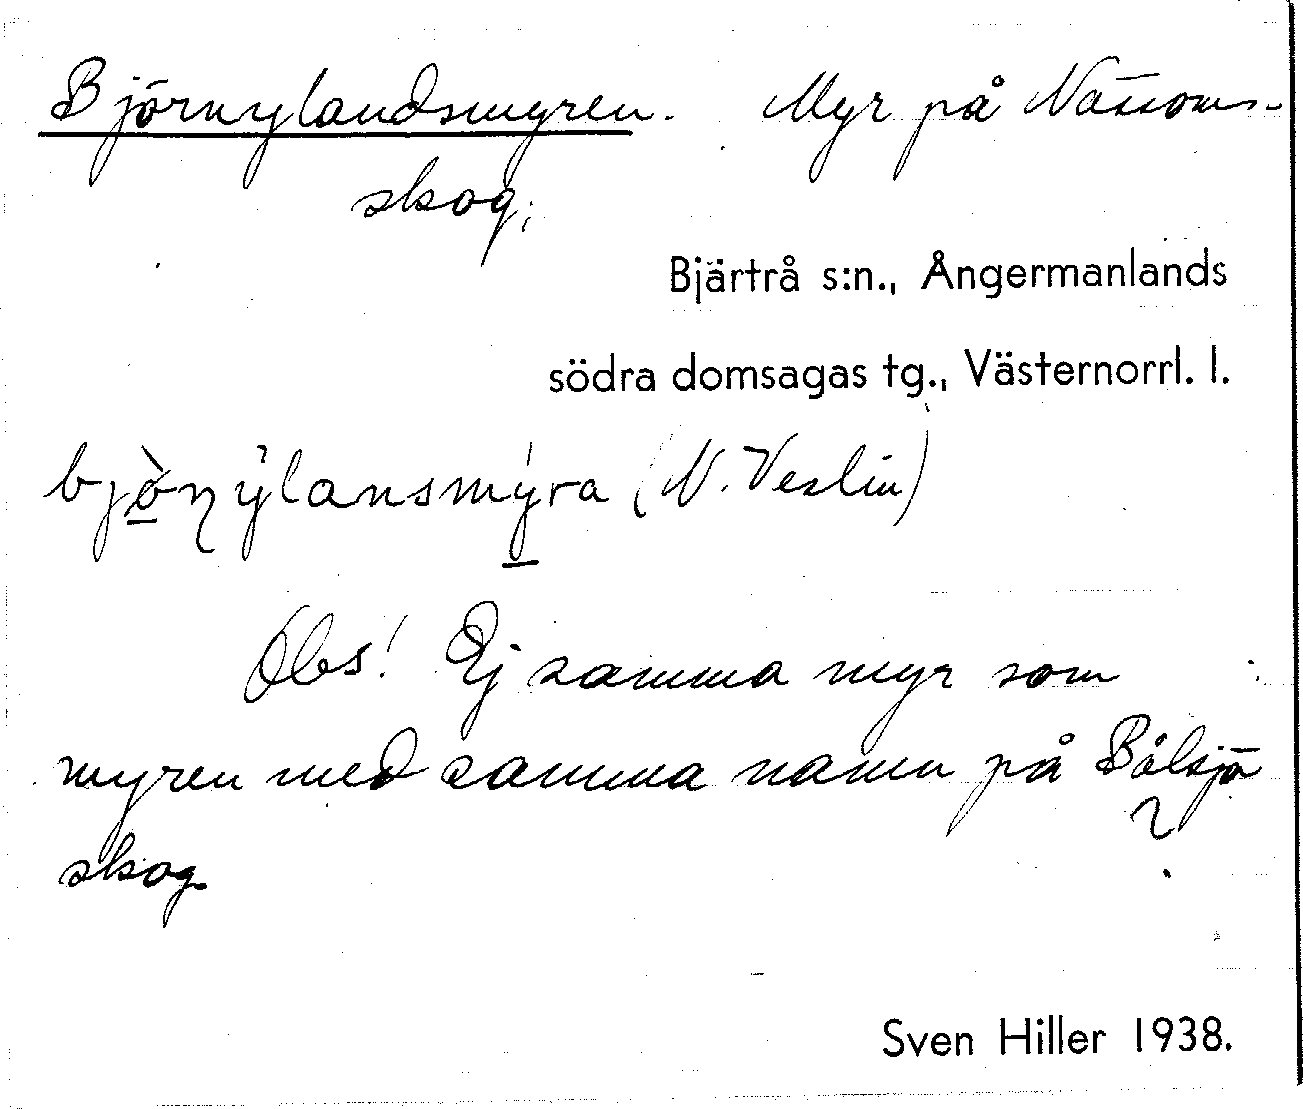 Björnylandsmyren. Myr på Nässoms-
skog;
Bjärtrå s:n., Ångermanlands
södra domsagas tg., Västernorrl. l.
(N. Veslin)
Obs! Ej samma myr som
myren med samma namn på Bålsjö
?
skog.
Sven Hiller 1938.